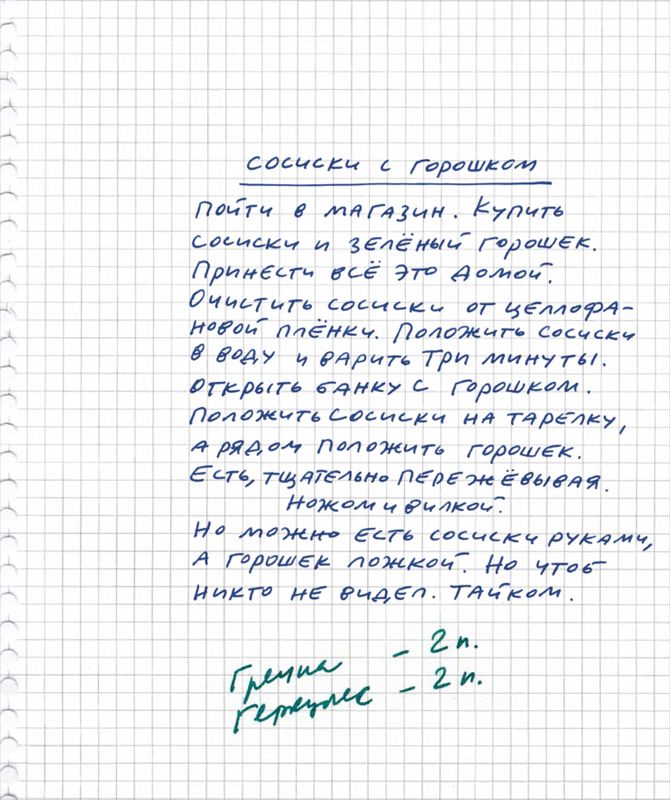 СОСИСКИ С ГОРОШКОМ
ПОЙТИ В МАГАЗИН. КУПИТЬ
СОСИСКИ И ЗЕЛЁНЫЙ ГОРОШЕК.
ПРИНЕСТИ ВСЁ ЭТО ДОМОЙ.
ОЧИСТИТЬ СОСИСКИ ОТ ЦЕЛЛОФА-
НОВОЙ ПЛЁНКИ. ПОЛОЖИТЬ СОСИСКИ
В ВОДУ И ВАРИТЬ ТРИ МИНУТЫ.
ОТКРЫТЬ БАНКУ С ГОРОШКОМ.
ПОЛОЖИТЬ СОСИСКИ НА ТАРЕЛКУ,
А РЯДОМ ПОЛОЖИТЬ ГОРОШЕК.
ЕСТЬ, ТЩАТЕЛЬНО ПЕРЕЖЁВЫВАЯ.
НОЖОМ И ВИЛКОЙ.
НО МОЖНО ЕСТЬ СОСИСКИ РУКАМИ,
А ГОРОШЕК ЛОЖКОЙ. НО ЧТОБ
НИКТО НЕ ВИДЕЛ. ТАЙКОМ.
Гречка – 2 п.
Геркулес – 2 п.